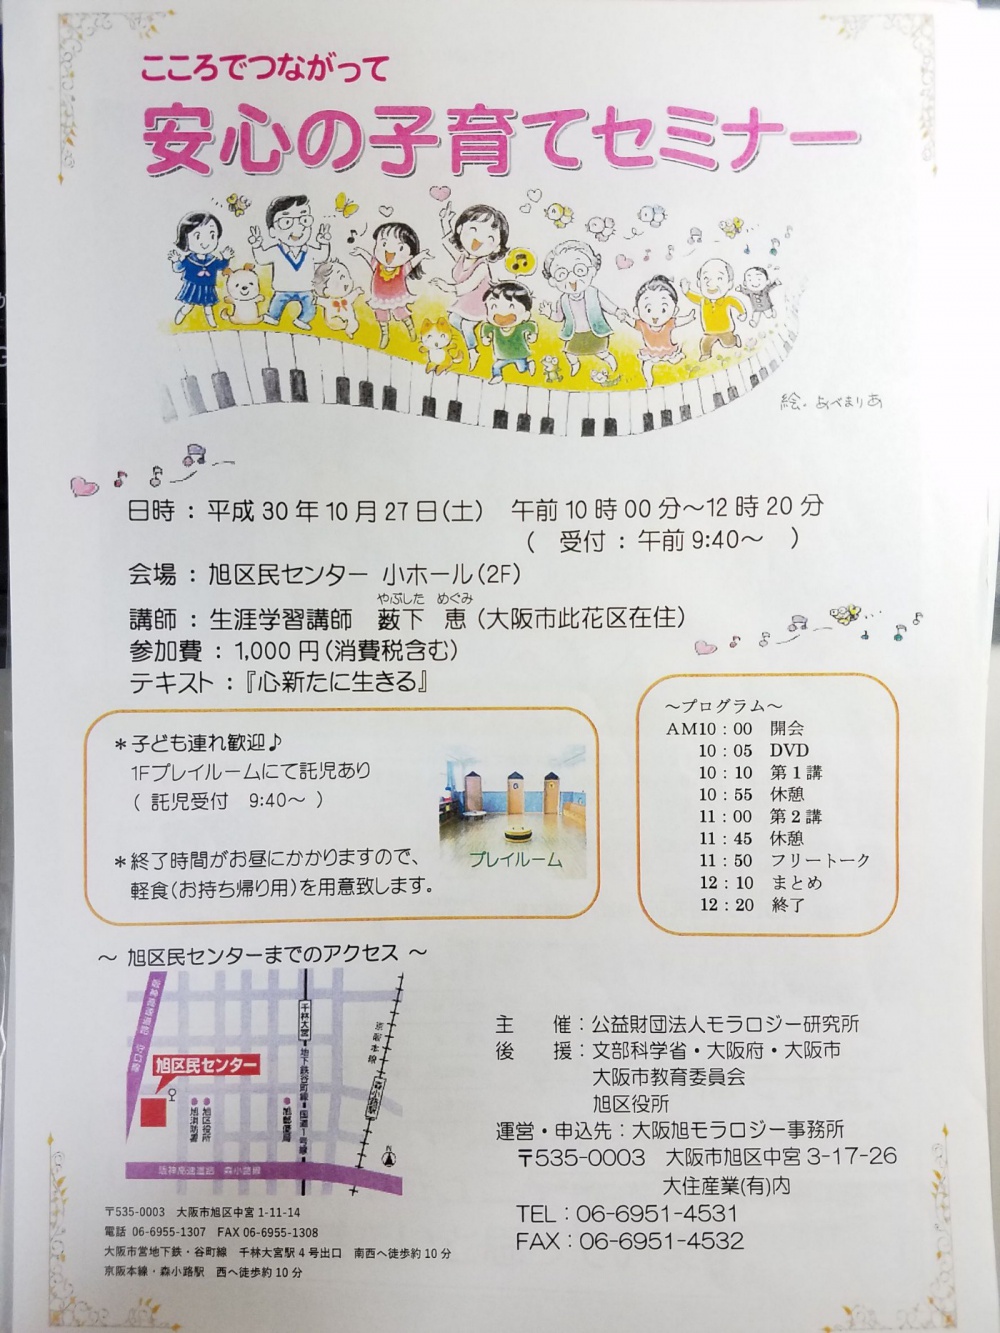 こころでつながって
安心の子育てセミナー
絵・よべまりあ
日時 : 平成 30 年 10 月 27 日(土) 午前 10 時 00 分～12 時 20 分
( 受付 : 午前 9:40～ )
会場 : 旭区民センター 小ホール(2F)
やぶした めぐみ
講師 : 生涯学習講師 薮下 恵 (大阪市此花区在住)
参加費 : 1,000 円(消費税含む)
テキスト : 『心新たに生きる』
＊子ども連れ歓迎♪
1Fプレイルームにて託児あり
( 託児受付 9:40～ )
＊終了時間がお昼にかかりますので、
軽食(お持ち帰り用)を用意致します。
プレイルーム
～プログラム～
AM10：00 開会
10：05 DVD
10：10 第1講
10：55 休憩
11：00 第2講
11：45 休憩
11：50 フリートーク
12：10 まとめ
12：20 終了
～ 旭区民センターまでのアクセス ～
守口線
千林大宮
地下鉄谷町線・国道1号線
京阪本線
森小路駅
旭区民センター
旭消防署
旭区役所
旭郵便局
阪神高速道路 森小路線
N
〒535-0003 大阪市旭区中宮 1-11-14
電話 06-6955-1307 FAX 06-6955-1308
大阪市営地下鉄・谷町線 千林大宮駅 4 号出口 南西へ徒歩約 10 分
京阪本線・森小路駅 西へ徒歩約 10 分
主 催：公益財団法人モラロジー研究所
後 援：文部科学省・大阪府・大阪市
大阪市教育委員会
旭区役所
運営・申込先：大阪旭モラロジー事務所
〒535-0003 大阪市旭区中宮 3-17-26
大住産業(有)内
TEL：06-6951-4531
FAX：06-6951-4532